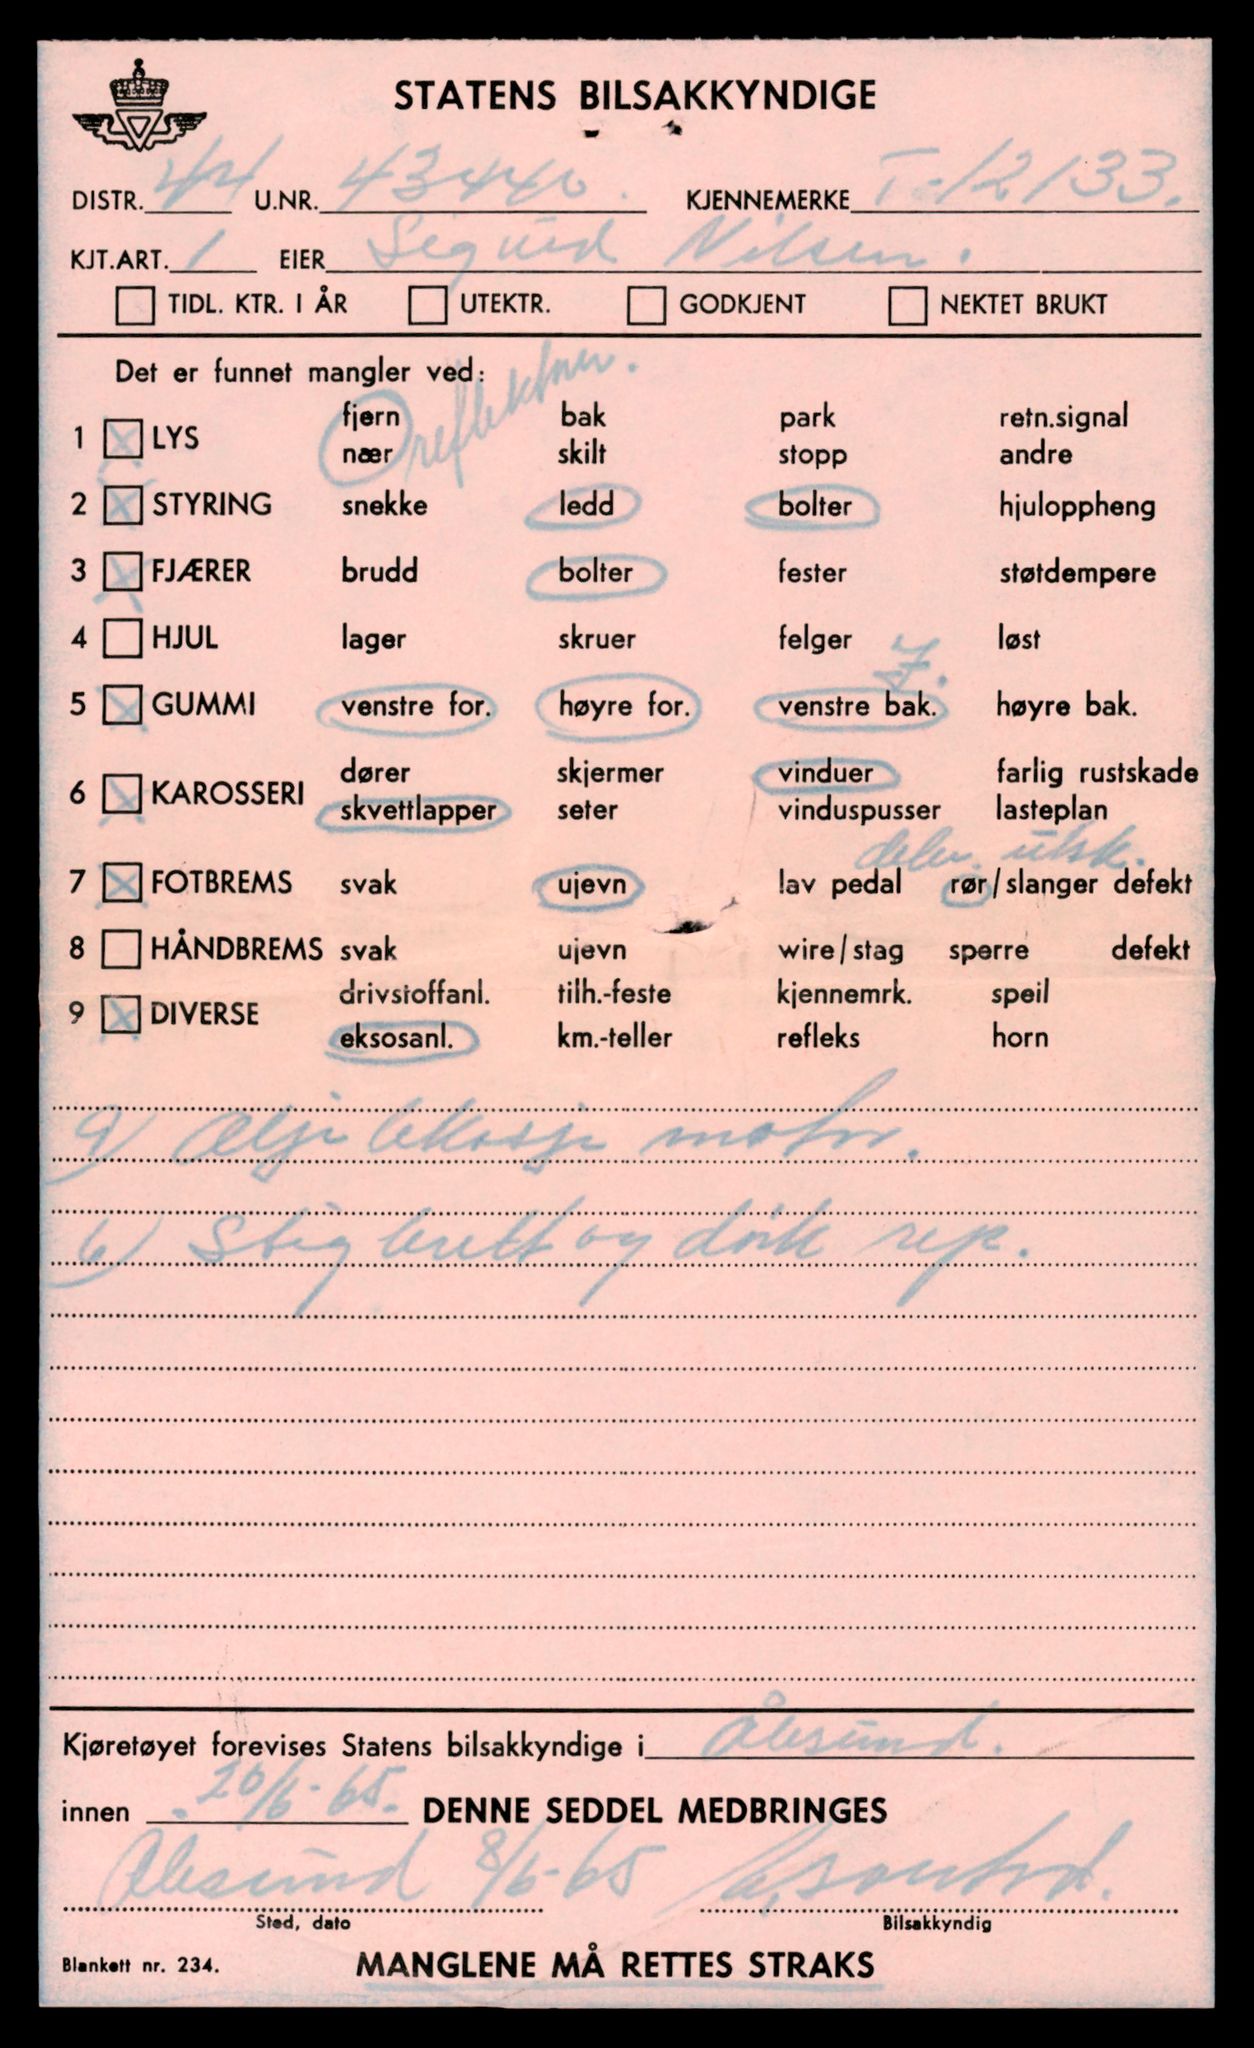 STATENS BILSAKKYNDIGE
DISTR. 44 U.NR. 43440. KJENNEMERKE T-12133.
KJT.ART. 1 EIER Sigurd Nilsen.
TIDL. KTR. I ÅR UTEKTR. GODKJENT NEKTET BRUKT
Det er funnet mangler ved: reflektorer.
fjern bak park retn.signal
1 X LYS
nær skilt stopp andre
2 X STYRING snekke ledd bolter hjuloppheng
3 X FJÆRER brudd bolter fester støtdempere
4 HJUL lager skruer felger løst
5 X GUMMI venstre for. høyre for. venstre bak. høyre bak.
dører skjermer vinduer farlig rustskade
6 X KAROSSERI
skvettlapper seter vinduspusser lasteplan
delv. utsk.
7 X FOTBREMS svak ujevn lav pedal rør/slanger defekt
8 HÅNDBREMS svak ujevn wire/stag sperre defekt
drivstoffanl. tilh.-feste kjennemrk. speil
9 X DIVERSE
eksosanl. km.-teller refleks horn
9) Olje lekasje motor.
6) Stigbrett og dørk rep.
Kjøretøyet forevises Statens bilsakkyndige i Ålesund.
innen 20/6-65. DENNE SEDDEL MEDBRINGES
Ålesund 8/6-65
Sted, dato Bilsakkyndig
Blankett nr. 234. MANGLENE MÅ RETTES STRAKS